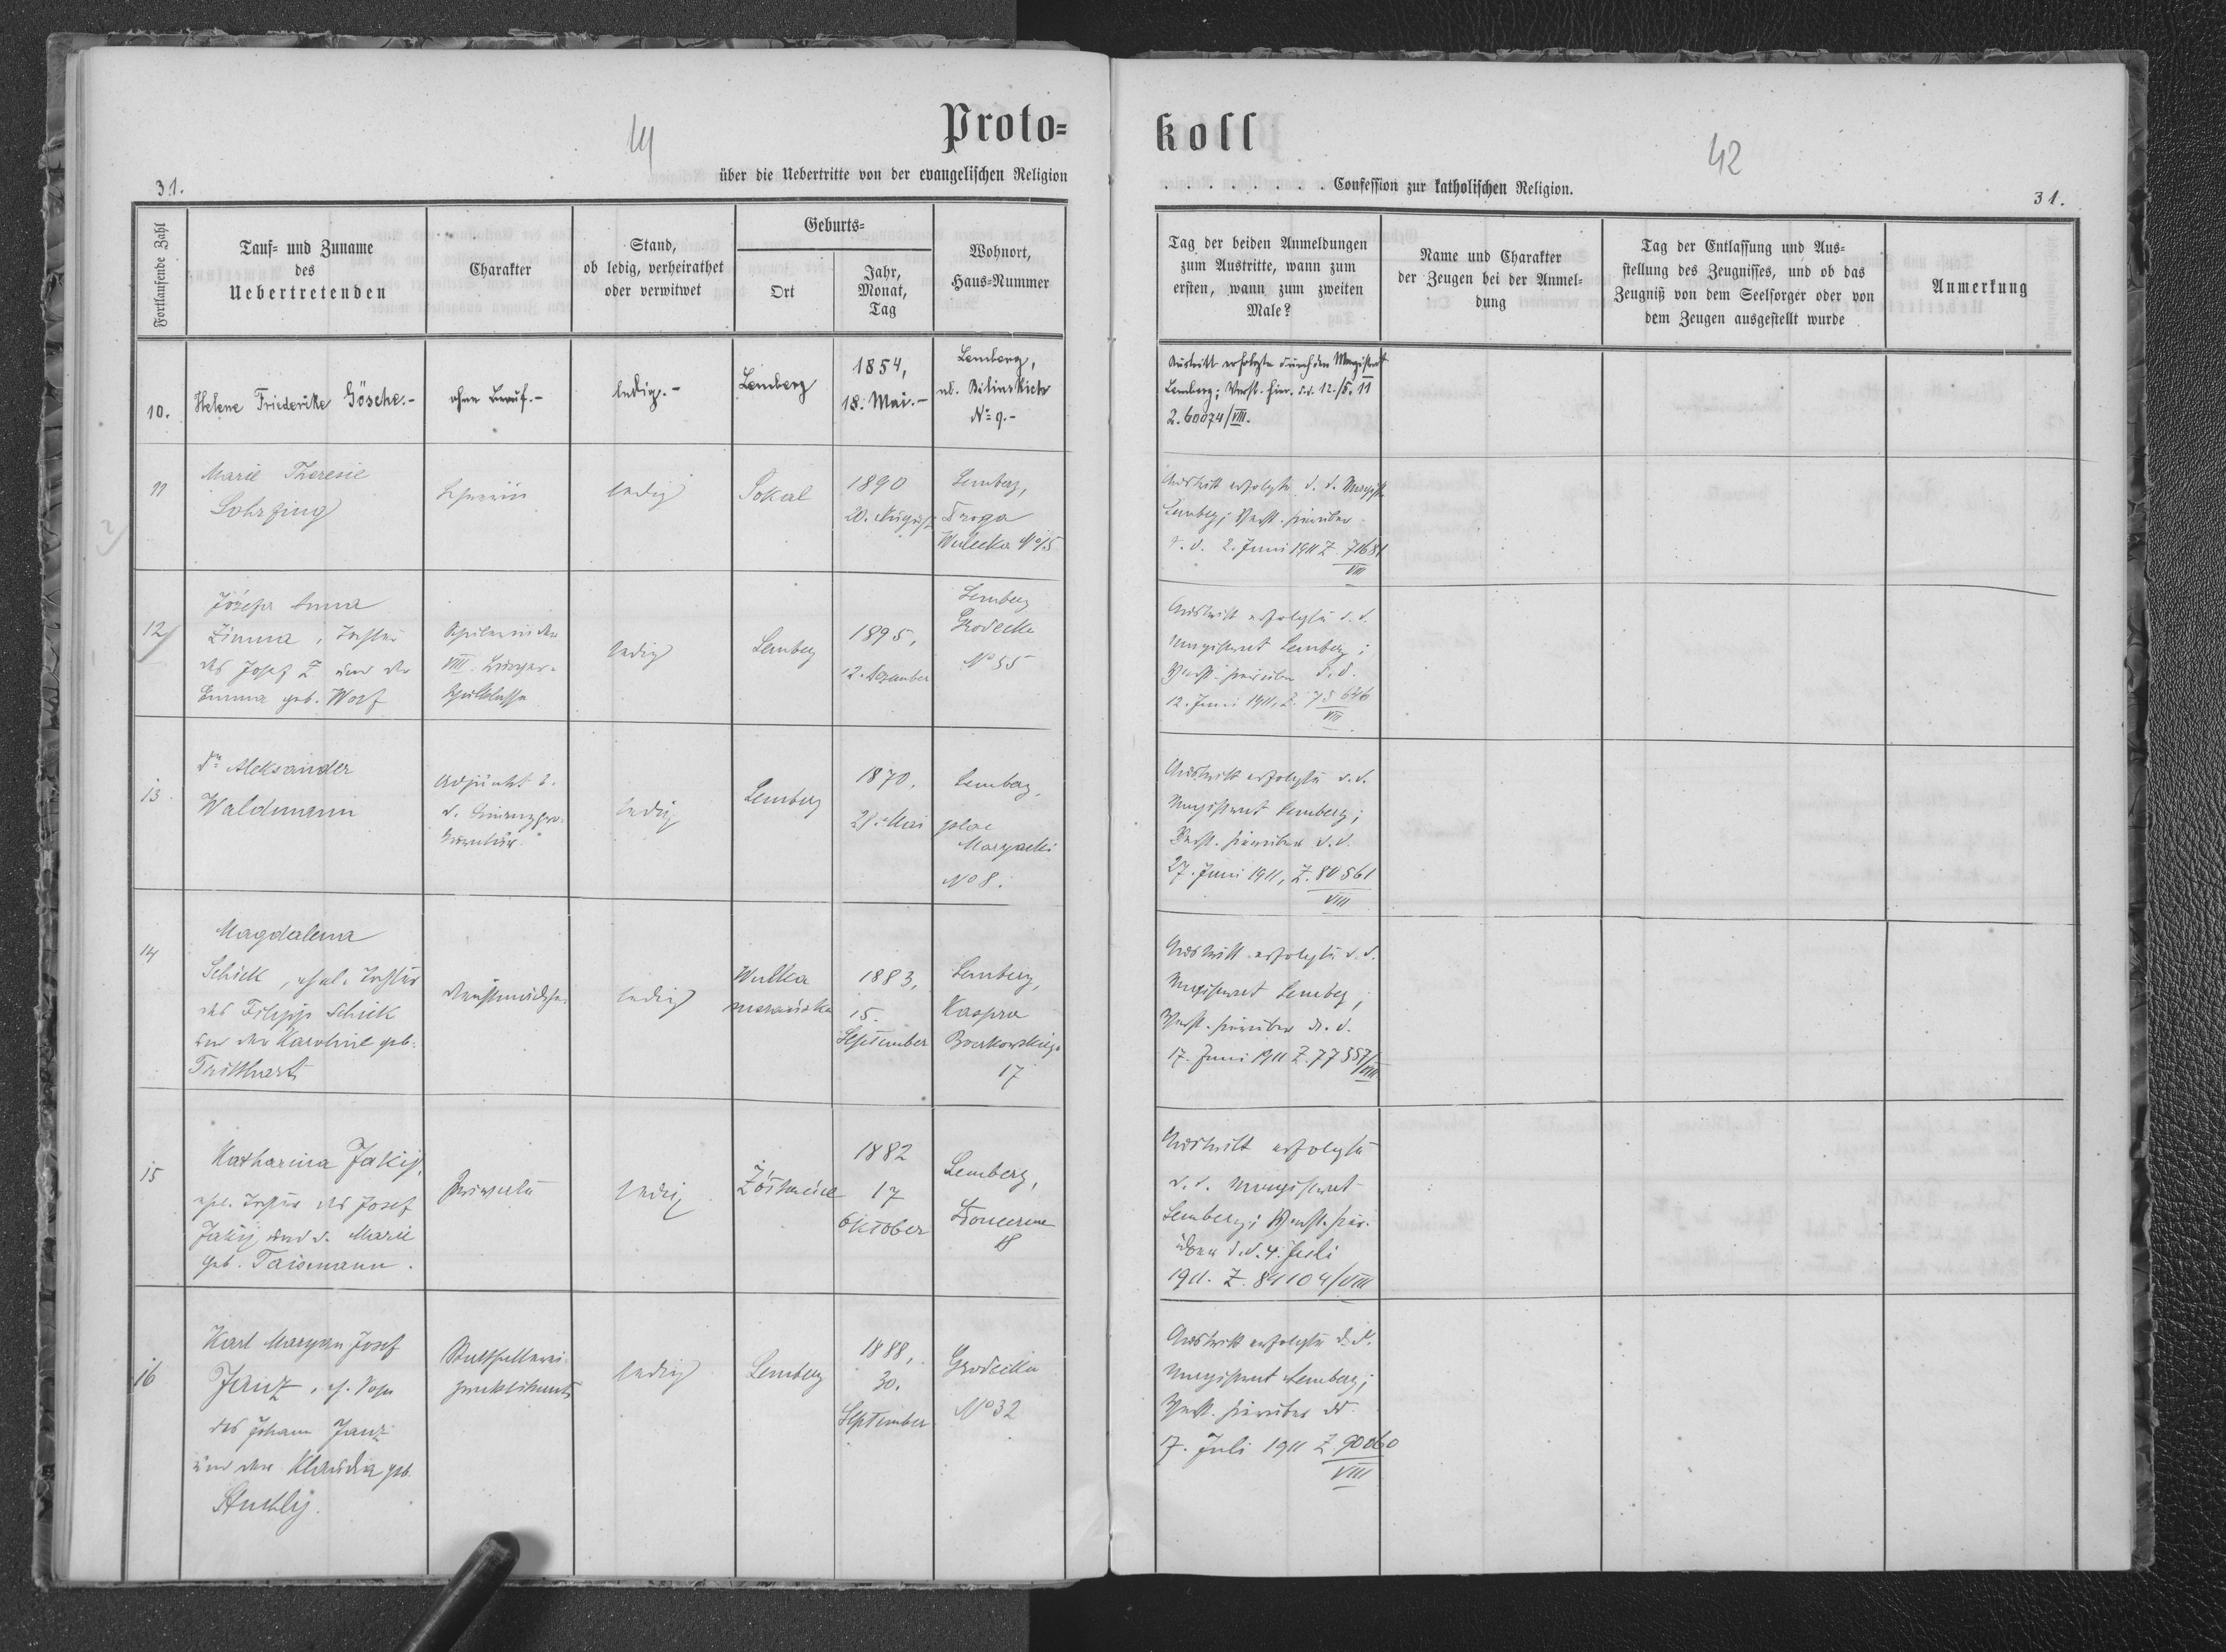 Proto-
41
über die Uebertritte von der evangelischen Religion
31.
Fortlaufende Zahl
Tauf- und Zuname
des
Uebertretenden
Charakter
Stand,
ob ledig, verheirathet
oder verwitwet
Geburts-
Ort
Jahr,
Monat,
Tag
Wohnort,
Haus-Nummer
10.
Helene Friederike Gösche.-
ohne Beruf.-
ledig.-
Lemberg
1854,
18. Mai.-
Lemberg,
ul. Bilinskich
No 9.-
11
Marie Theresie
Lehrerin
ledig
Sokal
1890
20. August
Lemberg,
Droga
Wulecka No 15
12
Józefa Anna
Zimma, Tochter
des Josef Z und der
Emma geb. Worf
Schülerin der
VIII. Bürger-
schulklasse
ledig
Lemberg
1895,
12. Dezember
Lemberg
Grodecka
No 55
13.
Dr Aleksander
Waldmann
Adjunkt d.
d. Finanzpro-
kuratur.
ledig
Lemberg
1870,
28. Mai
Lemberg,
plac
Maryacki
No 8.
14
Magdalena
Schick, ehel. Tochter
des Filipp Schick
und der Karoline geb.
Dienstmädchen
ledig
Wulka
1883,
15.
September
Lemberg,
Kaspra
Boczkowskiego
17
15
Katharina Jakij,
ehel. Tochter des Josef
Jakij und d. Marie
geb. Taismann.
Private
ledig
1882
17
Oktober
Lemberg,
18
16
Karl Maryan Josef
Janz, eh. Sohn
des Johann Janz
und der Klaudia geb.
Stuchlij.
Statthalterei-
praktikant
ledig
Lemberg
1888,
30.
September
Grodecka
No 32
koll
42
Confession zur katholischen Religion.
31.
Tag der beiden Anmeldungen
zum Austritte, wann zum
ersten, wann zum zweiten
Male?
Name und Charakter
der Zeugen bei der Anmel-
dung
Tag der Entlassung und Aus-
stellung des Zeugnisses, und ob das
Zeugniß von dem Seelsorger oder von
dem Zeugen ausgestellt wurde
Anmerkung
Austritt erfolgte durch den Magistrat
Lemberg; Verst. hier. d.d. 12./5. 11
Z. 60074/VIII.
Austritt erfolgte d. d. Magistr.
Lemberg; Verst. hierüber
d. d. 2. Juni 1911 Z. 71681
VIII
Austritt erfolgte d. d.
Magistrat Lemberg;
Verst. hierüber d. d.
12. Juni 1911, Z. 75646
VIII.
Austritt erfolgte d. d.
Magistrat Lemberg;
Verst. hierüber d. d.
27. Juni 1911, Z. 80561
VIII
Austritt erfolgte d. d.
Magistrat Lemberg;
Verst. hierüber d. d.
17. Juni 1911 Z. 77357/VIII
Austritt erfolgte
d. d. Magistrat
Lemberg; Verst. hier-
über d. d. 4. Juli
1911. Z. 84104/VIII
Austritt erfolgte d. d.
Magistrat Lemberg;
Verst. hierüber dd.
17. Juli 1911 Z. 90060
VIII